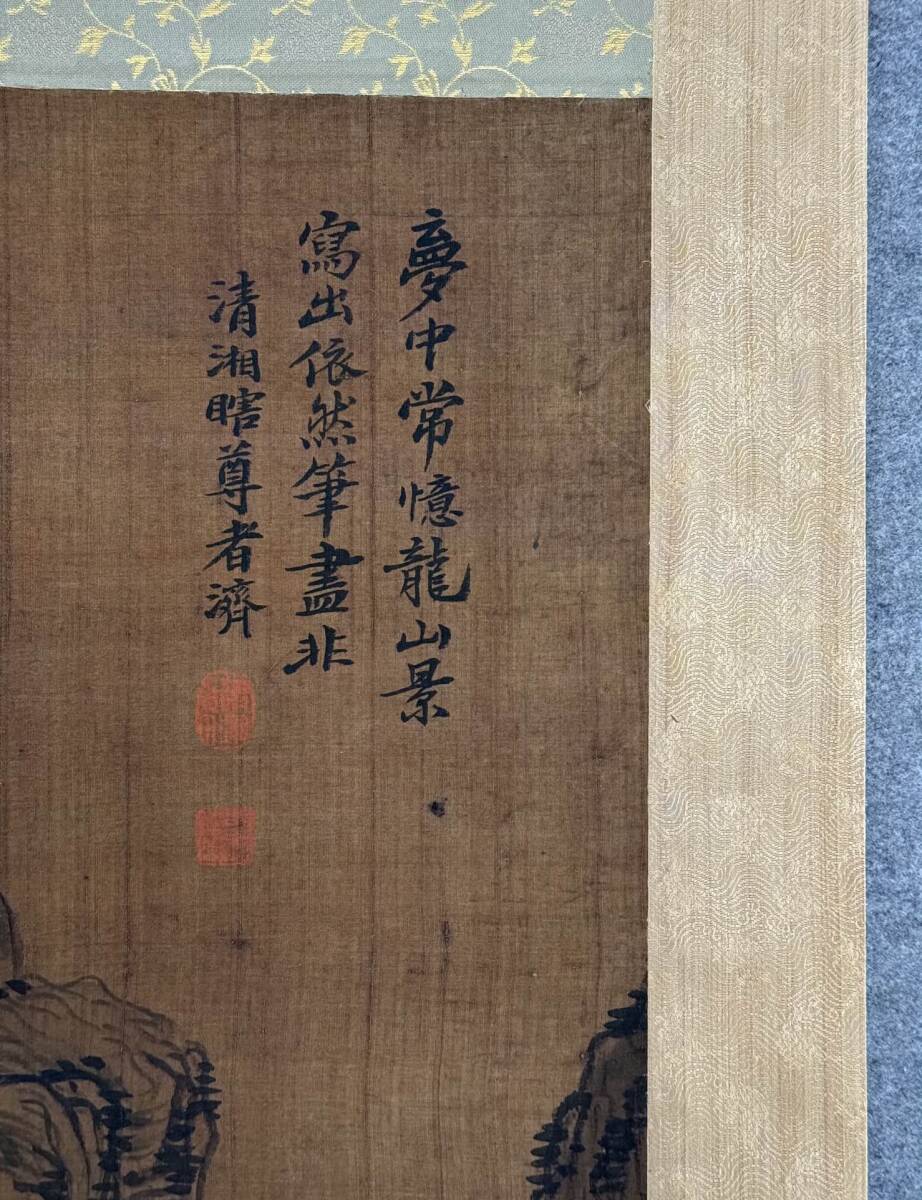 夢中常憶龍山景
寫出依然筆盡非
清湘瞎尊者濟